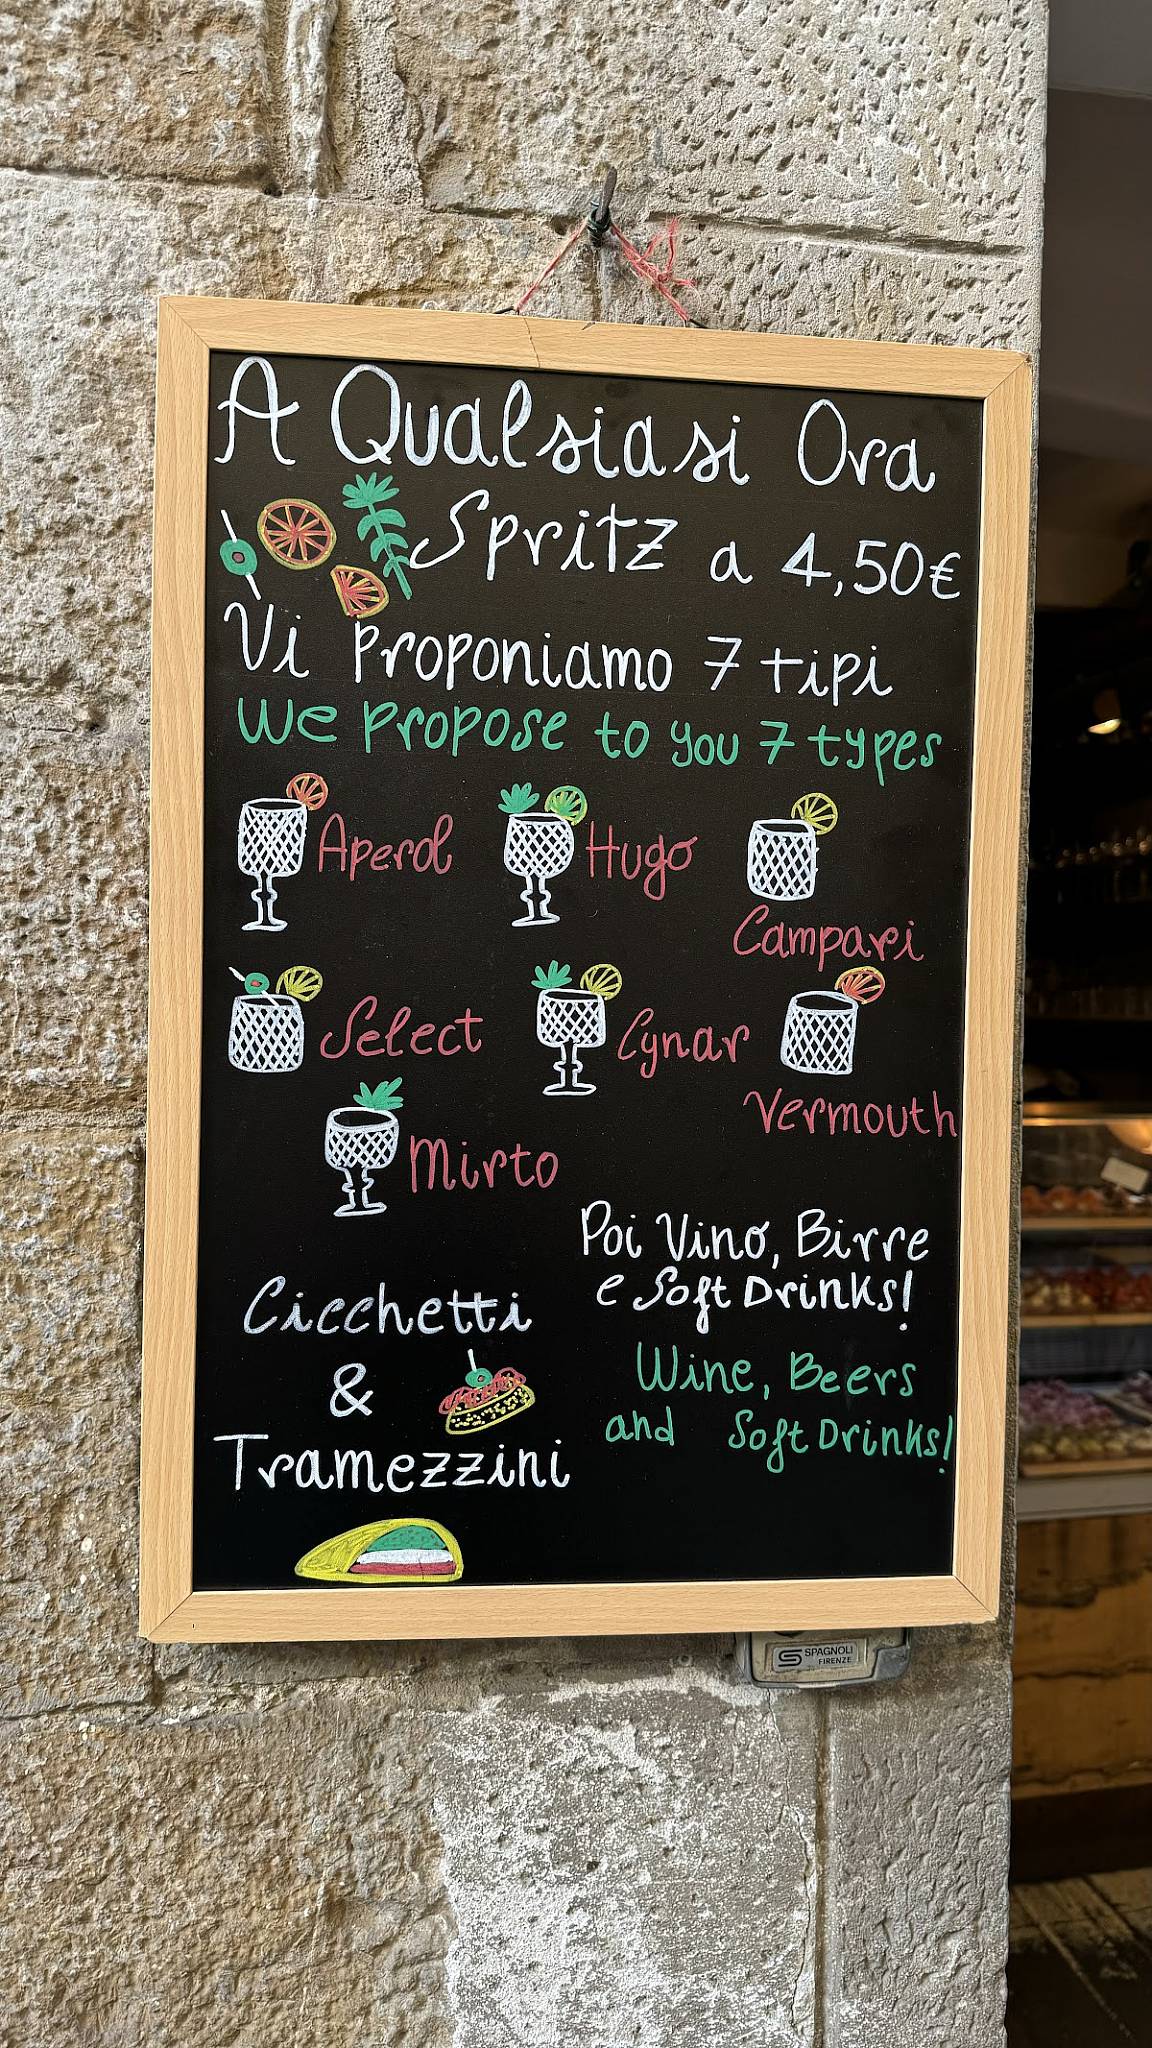 A Qualsiasi Ora
Spritz a 4,50€
Vi proponiamo 7 tipi
We propose to you 7 types
Aperol Hugo
Campari
Select Cynar
Vermouth
Mirto
Poi Vino, Birre
e Soft Drinks!
Cicchetti
&
Tramezzini
Wine, Beers
and Soft Drinks!
SPAGNOLI
FIRENZE